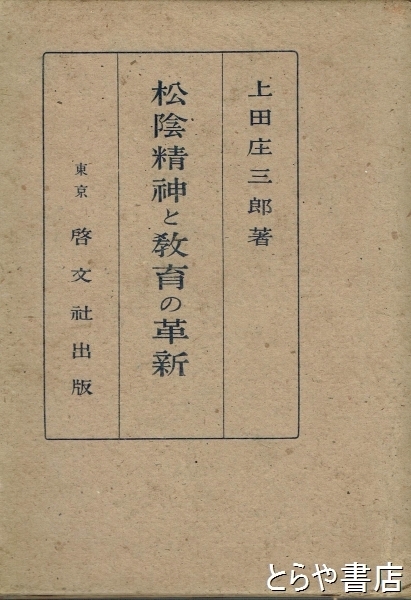 上田庄三郎著
松陰精神と教育の革新
東京 啓文社出版
とらや書店